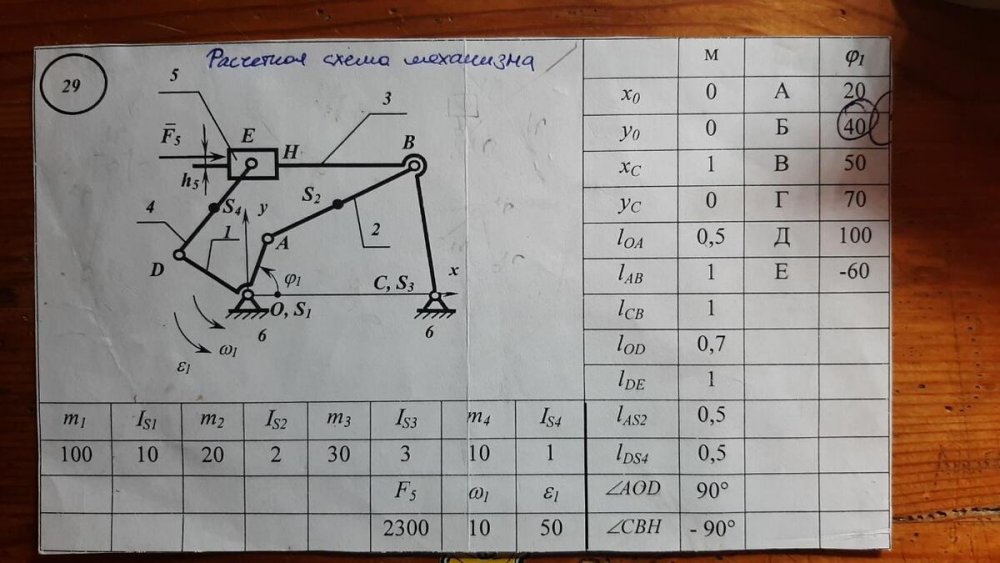 29
Расчетная схема механизма
5
3
F̅5
E
H
B
h5
S2
S4
y
4
1
A
2
D
φ1
C, S3
x
O, S1
ω1
6
6
ε1
м φ1
x0 0 А 20
y0 0 Б 40
xC 1 В 50
yC 0 Г 70
lOA 0,5 Д 100
lAB 1 Е -60
lCB 1
lOD 0,7
lDE 1
lAS2 0,5
lDS4 0,5
∠AOD 90°
∠CBH - 90°
m1 IS1 m2 IS2 m3 IS3 m4 IS4
100 10 20 2 30 3 10 1
F5 ω1 ε1
2300 10 50